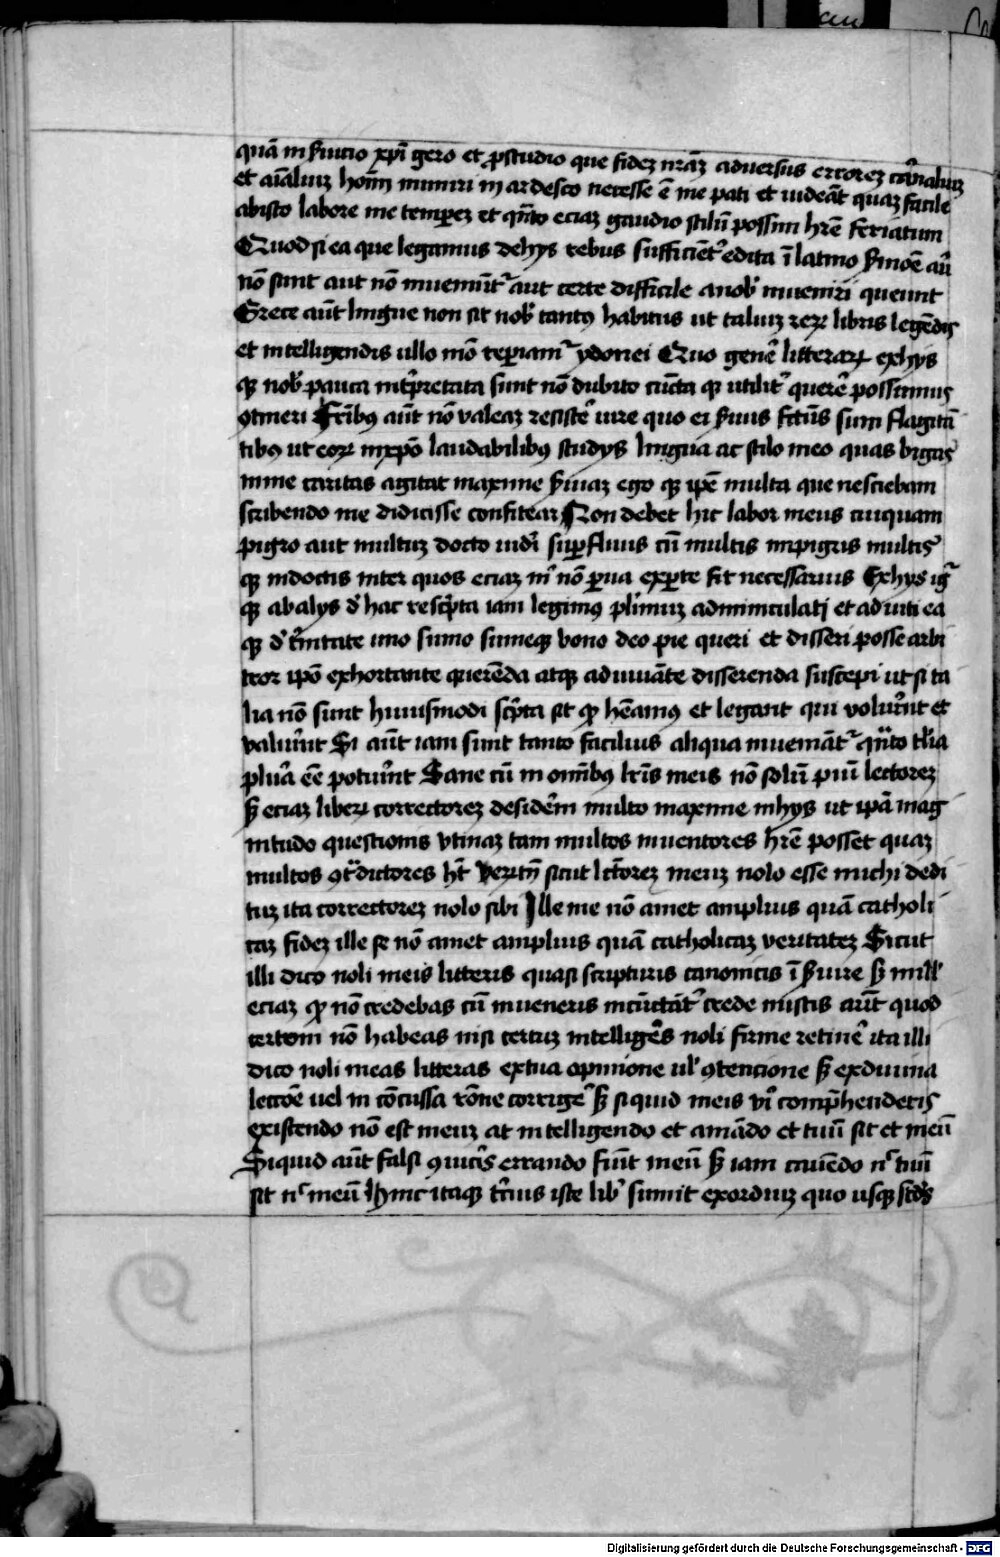 quā in ẜuicio xp̄i gero et ꝓ studio que fidez nr̄aʒ aduersus errorez
et aīaliuʒ hoīm muniri in ardesco necesse ē me pati et uideāt quaʒ facile
ab isto labore me temperez et qn̄to eciaʒ gaudio stilū possim hr̄e feriatum
Quod si ea que legamus de hys rebus sufficiēt᷑ edita ī latino ẜmōe aū
nō sunt aut nō inueniūt᷑ aut certe difficile a nob᷒ inueniri queunt
Grece aūt lingue non sit nob᷒ tantꝰ habitus ut taliuʒ reꝝ libris legēdis
et intelligendis ullo mō reperiam᷑ ydonei Quo genē litterarꝝ ex hys
qꝫ nob᷒ pauca int̄pretata sunt nō dubito cūcta qꝫ utilit᷑ querē possumus
ꝯtineri Fr̄ibꝰ aūt nō valeaʒ resistē iure quo ei ẜuus fc̄tus sum flagitā
tibꝰ ut eoꝝ in xp̄o laudabilibꝰ studys lingua ac stilo meo quas bigas
in me caritas agitat maxime ẜuiaʒ ego qꝫ ip̄e multa que nesciebam
scribendo me didicisse confiteaʒ Non debet hic labor meus cuiquam
pigro aut multuʒ docto uidi suꝑfluus cū multis impigris multis
qꝫ indoctis inter quos eciaʒ m̄ nō ꝑua experte sit necessarius Ex hys ig᷑
qꝫ ab alys d᷒ hac re scp̄ta iam legimꝰ pl᷒imuʒ adminiculati et adiuti ea
qꝫ d᷒ t̄nitate uno sumo sumeqꝫ bono deo pie queri et disseri posse arbi
tror ip̄o exhortante querēda atqꝫ adiuuāte disserenda suscepi ut si ta
lia nō sunt huiusmodi scp̄ta sit qꝫ hēamꝰ et legant qui voluēnt et
valuēnt Si aūt iam sunt tanto facilius aliqua inueniāt᷑ qn̄to tl̄ia
plura eē potuēnt Sane cū in om̄ibꝰ lr̄is meis nō solū piū lectorez
ẜ eciaʒ liberꝝ correctorez desidēm multo maxime in hys ut ip̄a mag
nitudo questionis vtinaʒ tam multos inuentores hr̄e posset quaʒ
multos ꝯt̄dictores hʒ Verūtn̄ sicut lc̄torez meuʒ nolo esse michi dedi
tuʒ ita correctorez nolo sibi Ille me nō amet amplius quā catholi
caʒ fidez ille se nō amet amplius quā catholicaʒ veritatez Sicut
illi dico noli meis litteris quasi scripturis canonicis īẜuire ẜ in ill᷒
eciaʒ qꝫ nō credebas cū inueneris incūctāt᷑ crede in istis aūt quod
certom nō habeas nisi certuʒ intelligēs noli firme retinē ita illi
dico noli meas litteras ex tua opinione ul᷒ ꝯtencione ẜ ex diuina
lectōe uel in cōcussa rōne corrigē ẜ si quid meis vī comp̄henderis
existendo nō est meuʒ at intelligendo et amādo et tuū sit et meū
Si quid aūt falsi ꝯuic̄is errando fūit meū ẜ iam cauēdo n᷑ tuū
sit n᷑ meū Hinc itaqꝫ t̄cius iste lib᷒ sumit exordiuʒ quo usqꝫ scd̄s
Digitalisierung gefördert durch die Deutsche Forschungsgemeinschaft - DFG